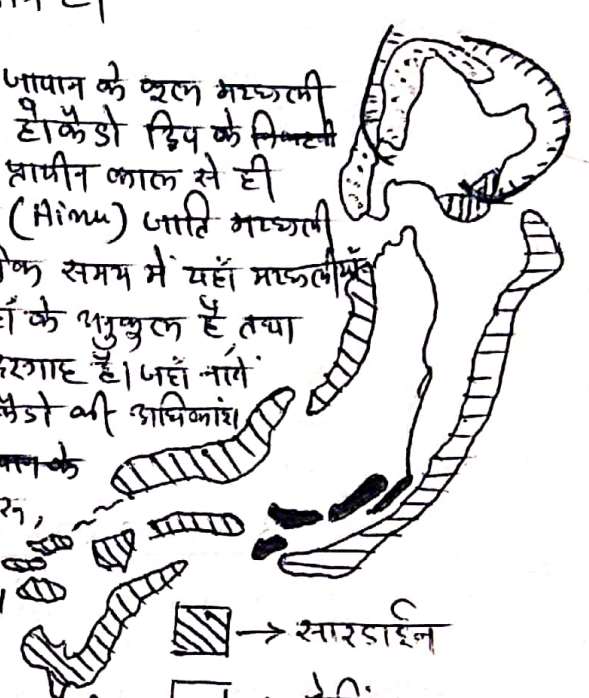 जापान के कुल मछली
हौकैडो द्विप के
प्राचीन काल से ही
(Ainu) जाति मछली
समय में यहाँ मछलीयाँ
के अनुकूल है, तथा
है। जहाँ नावें
की अधिकांश
के
→ सारडाईन